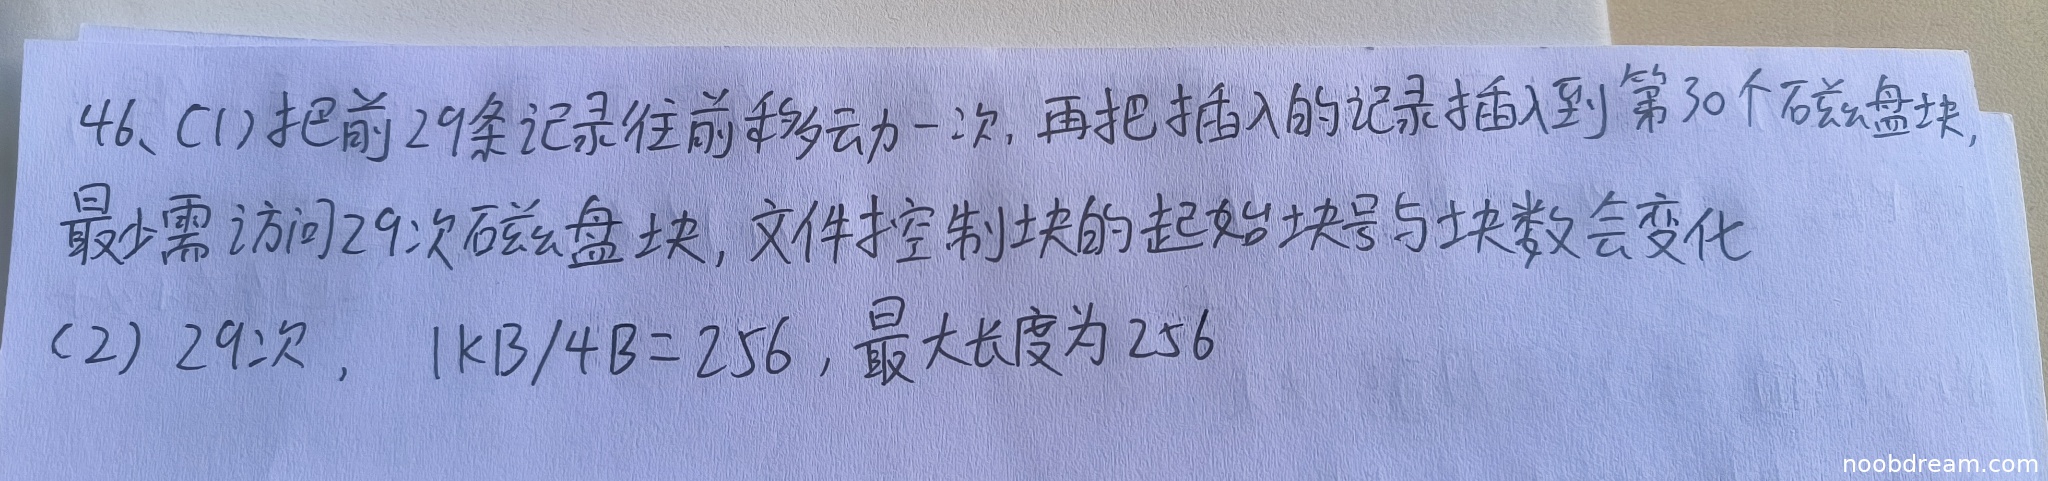 46、(1)把前29条记录往前移动一次,再把插入的记录插入到第30个磁盘块,
最少需访问29次磁盘块,文件控制块的起始块号与块数会变化
(2) 29次, 1KB/4B=256,最大长度为256
noobdream.com